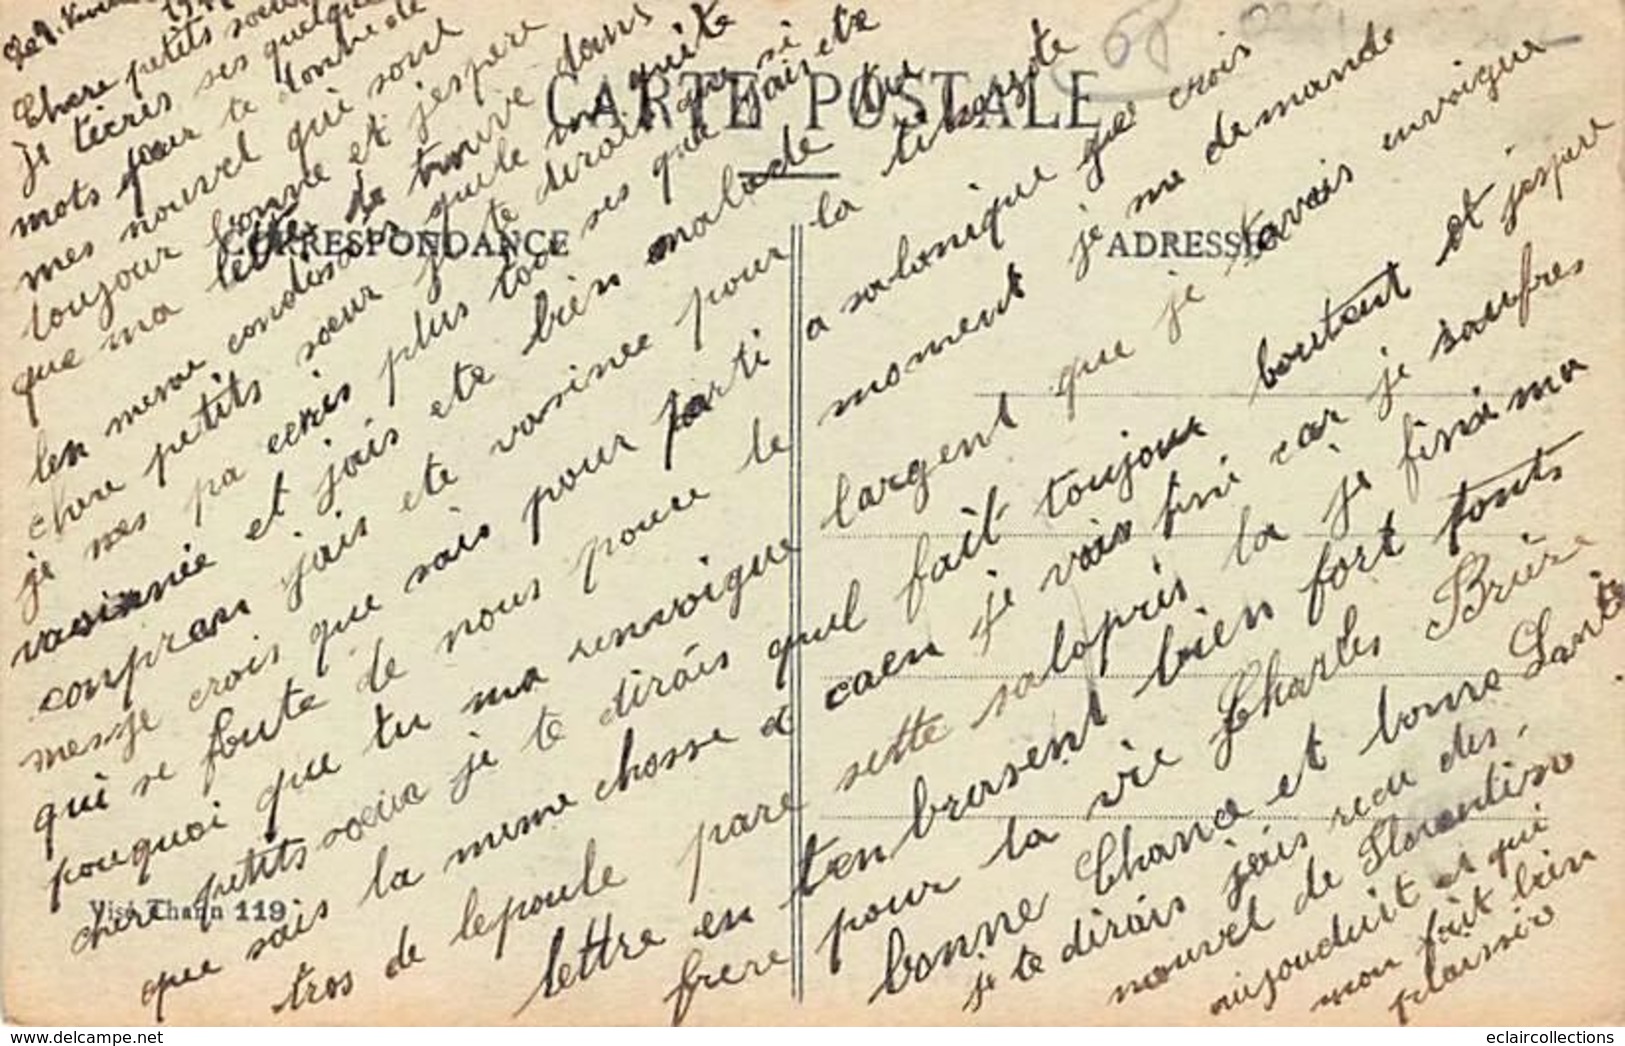 Chere petits soeur
je tecris ses quelque
mots pour te donne de
mes nouvel qui sont
toujour bonne et jespere
que ma lettre te trouve dans
les meme condision quele me quite
chere petits soeur je te dirais que si
je nes pa ecris plus tou ses que jais ete
vasinnée et jais ete bien malade tu
conpran jais ete vasinee pour la tiposite
mesje crois que sais pour parti a salonique que crois
qui se foute de nous pour le moment je me demande
pourquoi que tu ma renvoigue largent que je tavais envoigue
chere petits soeur je te dirais quel fait toujour boutent et jespere
que sais la meme chosse a caen je vais fini car je soufres
tros de lepoule pare sette salopris la je finai ma
lettre en tenbrersent bien fort tonts
frere pour la vie Charles Brière
bonne Chance et bonne Santé
je te dirais jais recu des
nouvel de Florentine
aujouduit et qui
mon fait bien
plaisir
CARTE POSTALE
CORRESPONDANCE
ADRESSE
Visé Thann 119
68
eclaircollections